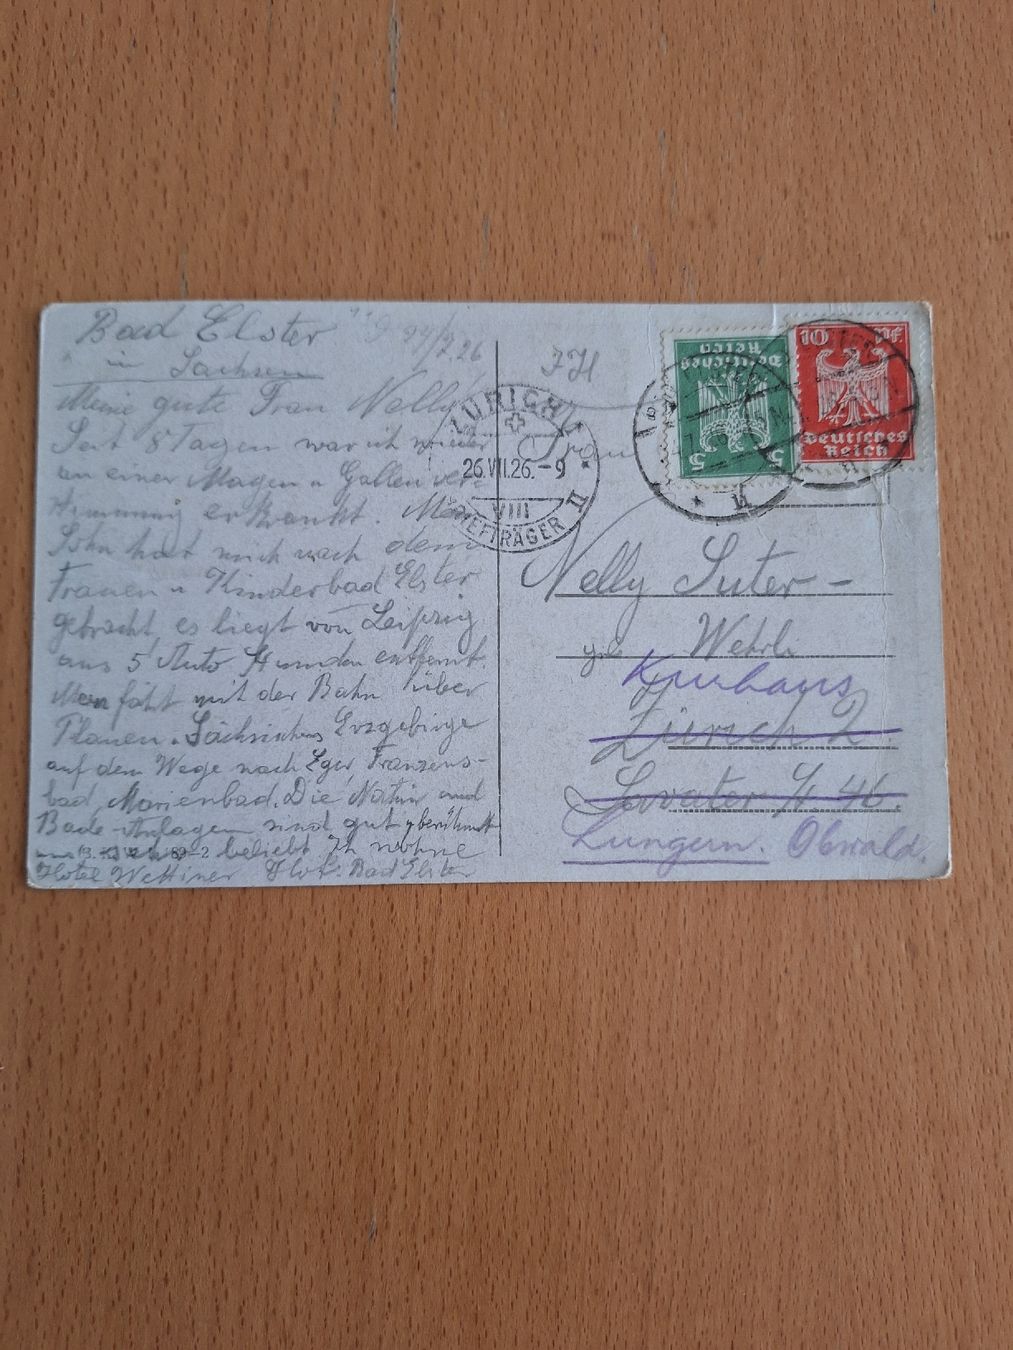 Bad Elster 24/7.26
in Sachsen
Meine gute Frau Nelly!
Seit 8 Tagen war ich wieder
an einer Magen u Gallen ver-
stimmung erkrankt. Mein
Sohn hat mich nach dem
Frauen u Kinderbad Elster
gebracht, es liegt von Leipzig
aus 5 Auto Stunden entfernt.
Man fährt mit der Bahn über
Plauen. Sächsisches Erzgebirge
auf dem Wege nach Eger, Franzens-
bad, Marienbad. Die Natur und
Bade-Anlagen sind gut berühmt
beliebt. Ich wohne
Hotel Wettiner Hof. Bad Elster
ZÜRICH
26.VII.26.-9
VIII
BRIEFTRÄGER II
5
Deutsches
Reich
10 Pf
Deutsches
Reich
Frau
Nelly Suter-
geb Wehrli
Kurhaus
Zürich 2
Lavater 46.
Lungern. Obwald.